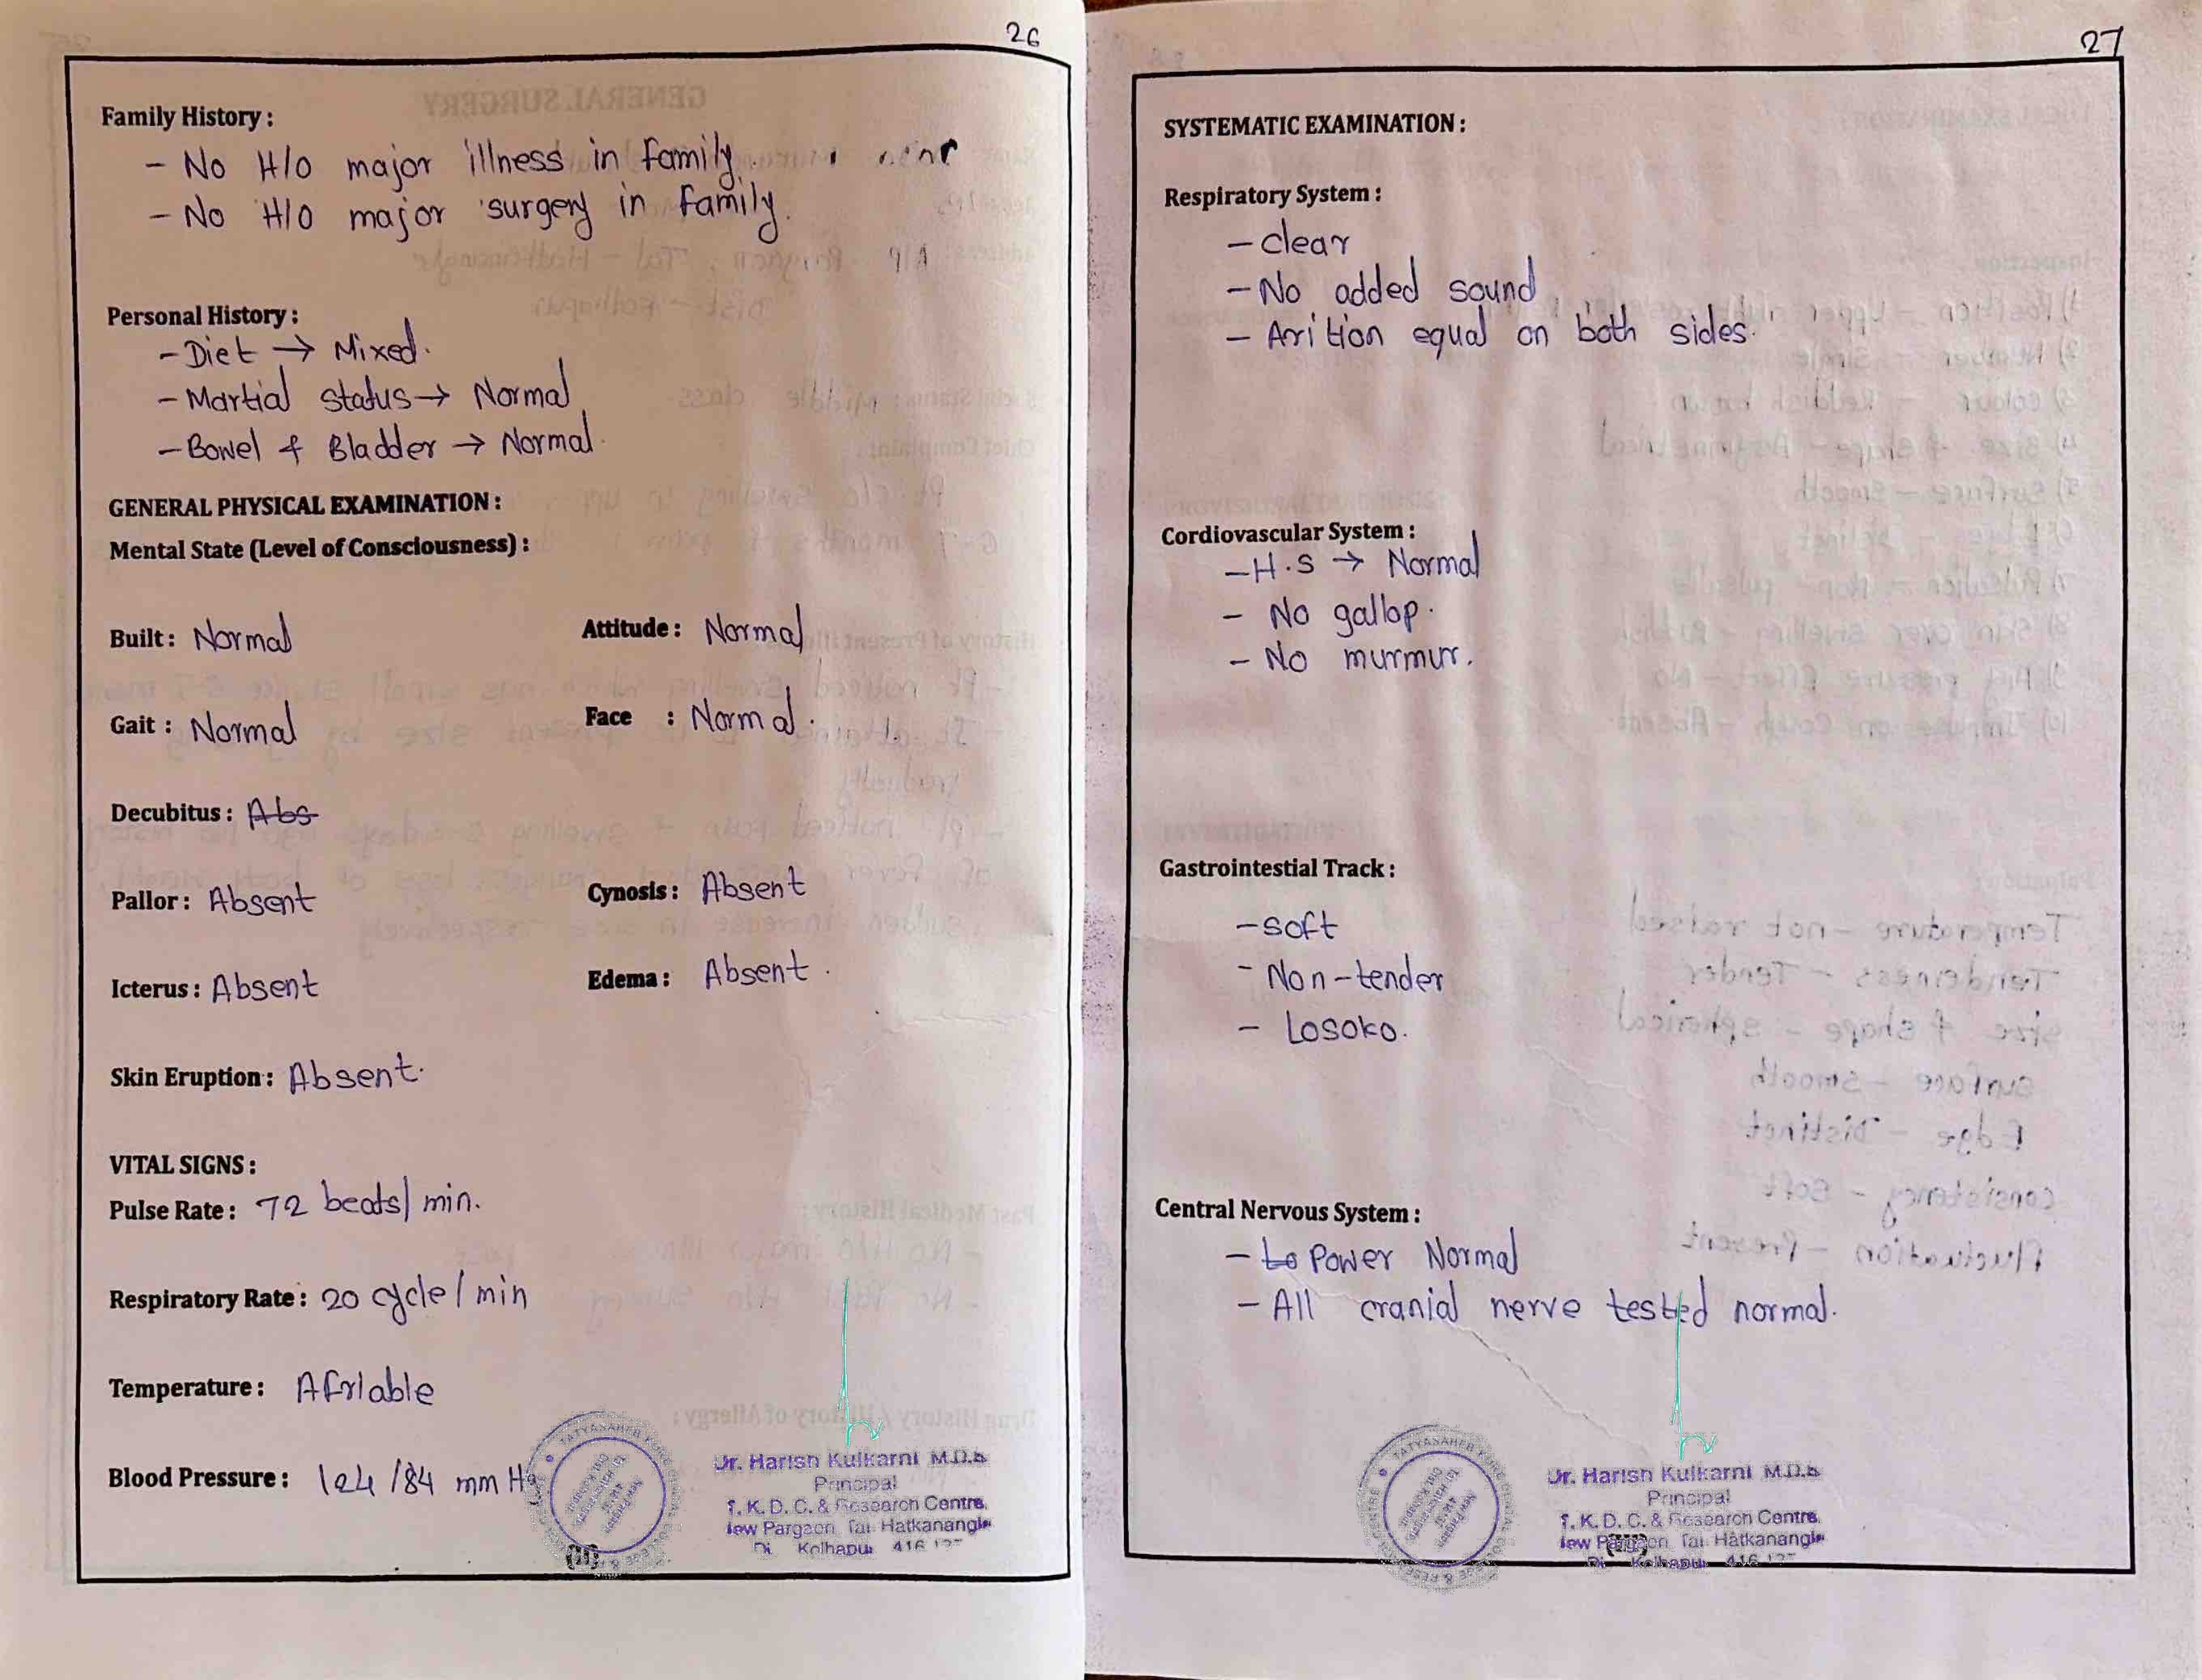 26
Family History :
- No H/o major illness in family.
- No H/o major surgery in family.
Personal History :
- Diet → Mixed.
- Martial status → Normal
- Bowel & Bladder → Normal.
GENERAL PHYSICAL EXAMINATION :
Mental State (Level of Consciousness) :
Built : Normal Attitude : Normal
Gait : Normal Face : Normal.
Decubitus : Abs
Pallor : Absent Cynosis : Absent
Icterus : Absent Edema : Absent.
Skin Eruption : Absent.
VITAL SIGNS :
Pulse Rate : 72 beats/min.
Respiratory Rate : 20 cycle/min
Temperature : Afriable
Blood Pressure : 124/84 mm Hg
Dr. Harish Kulkarni M.D.S
Principal
T. K. D. C. & Research Centre,
New Pargaon, Tal. Hatkanangle
Di Kolhapur 416 137
27
SYSTEMATIC EXAMINATION :
Respiratory System :
- clear
- No added sound
- Arition equal on both sides.
Cordiovascular System :
- H.S → Normal
- No gallop.
- No murmur.
Gastrointestial Track :
- soft
- Non-tender
- Losoko.
Central Nervous System :
- to Power Normal
- All cranial nerve tested normal.
Dr. Harish Kulkarni M.D.S
Principal
T. K. D. C. & Research Centre,
New Pargaon, Tal. Hatkanangle
Di Kolhapur 416 137